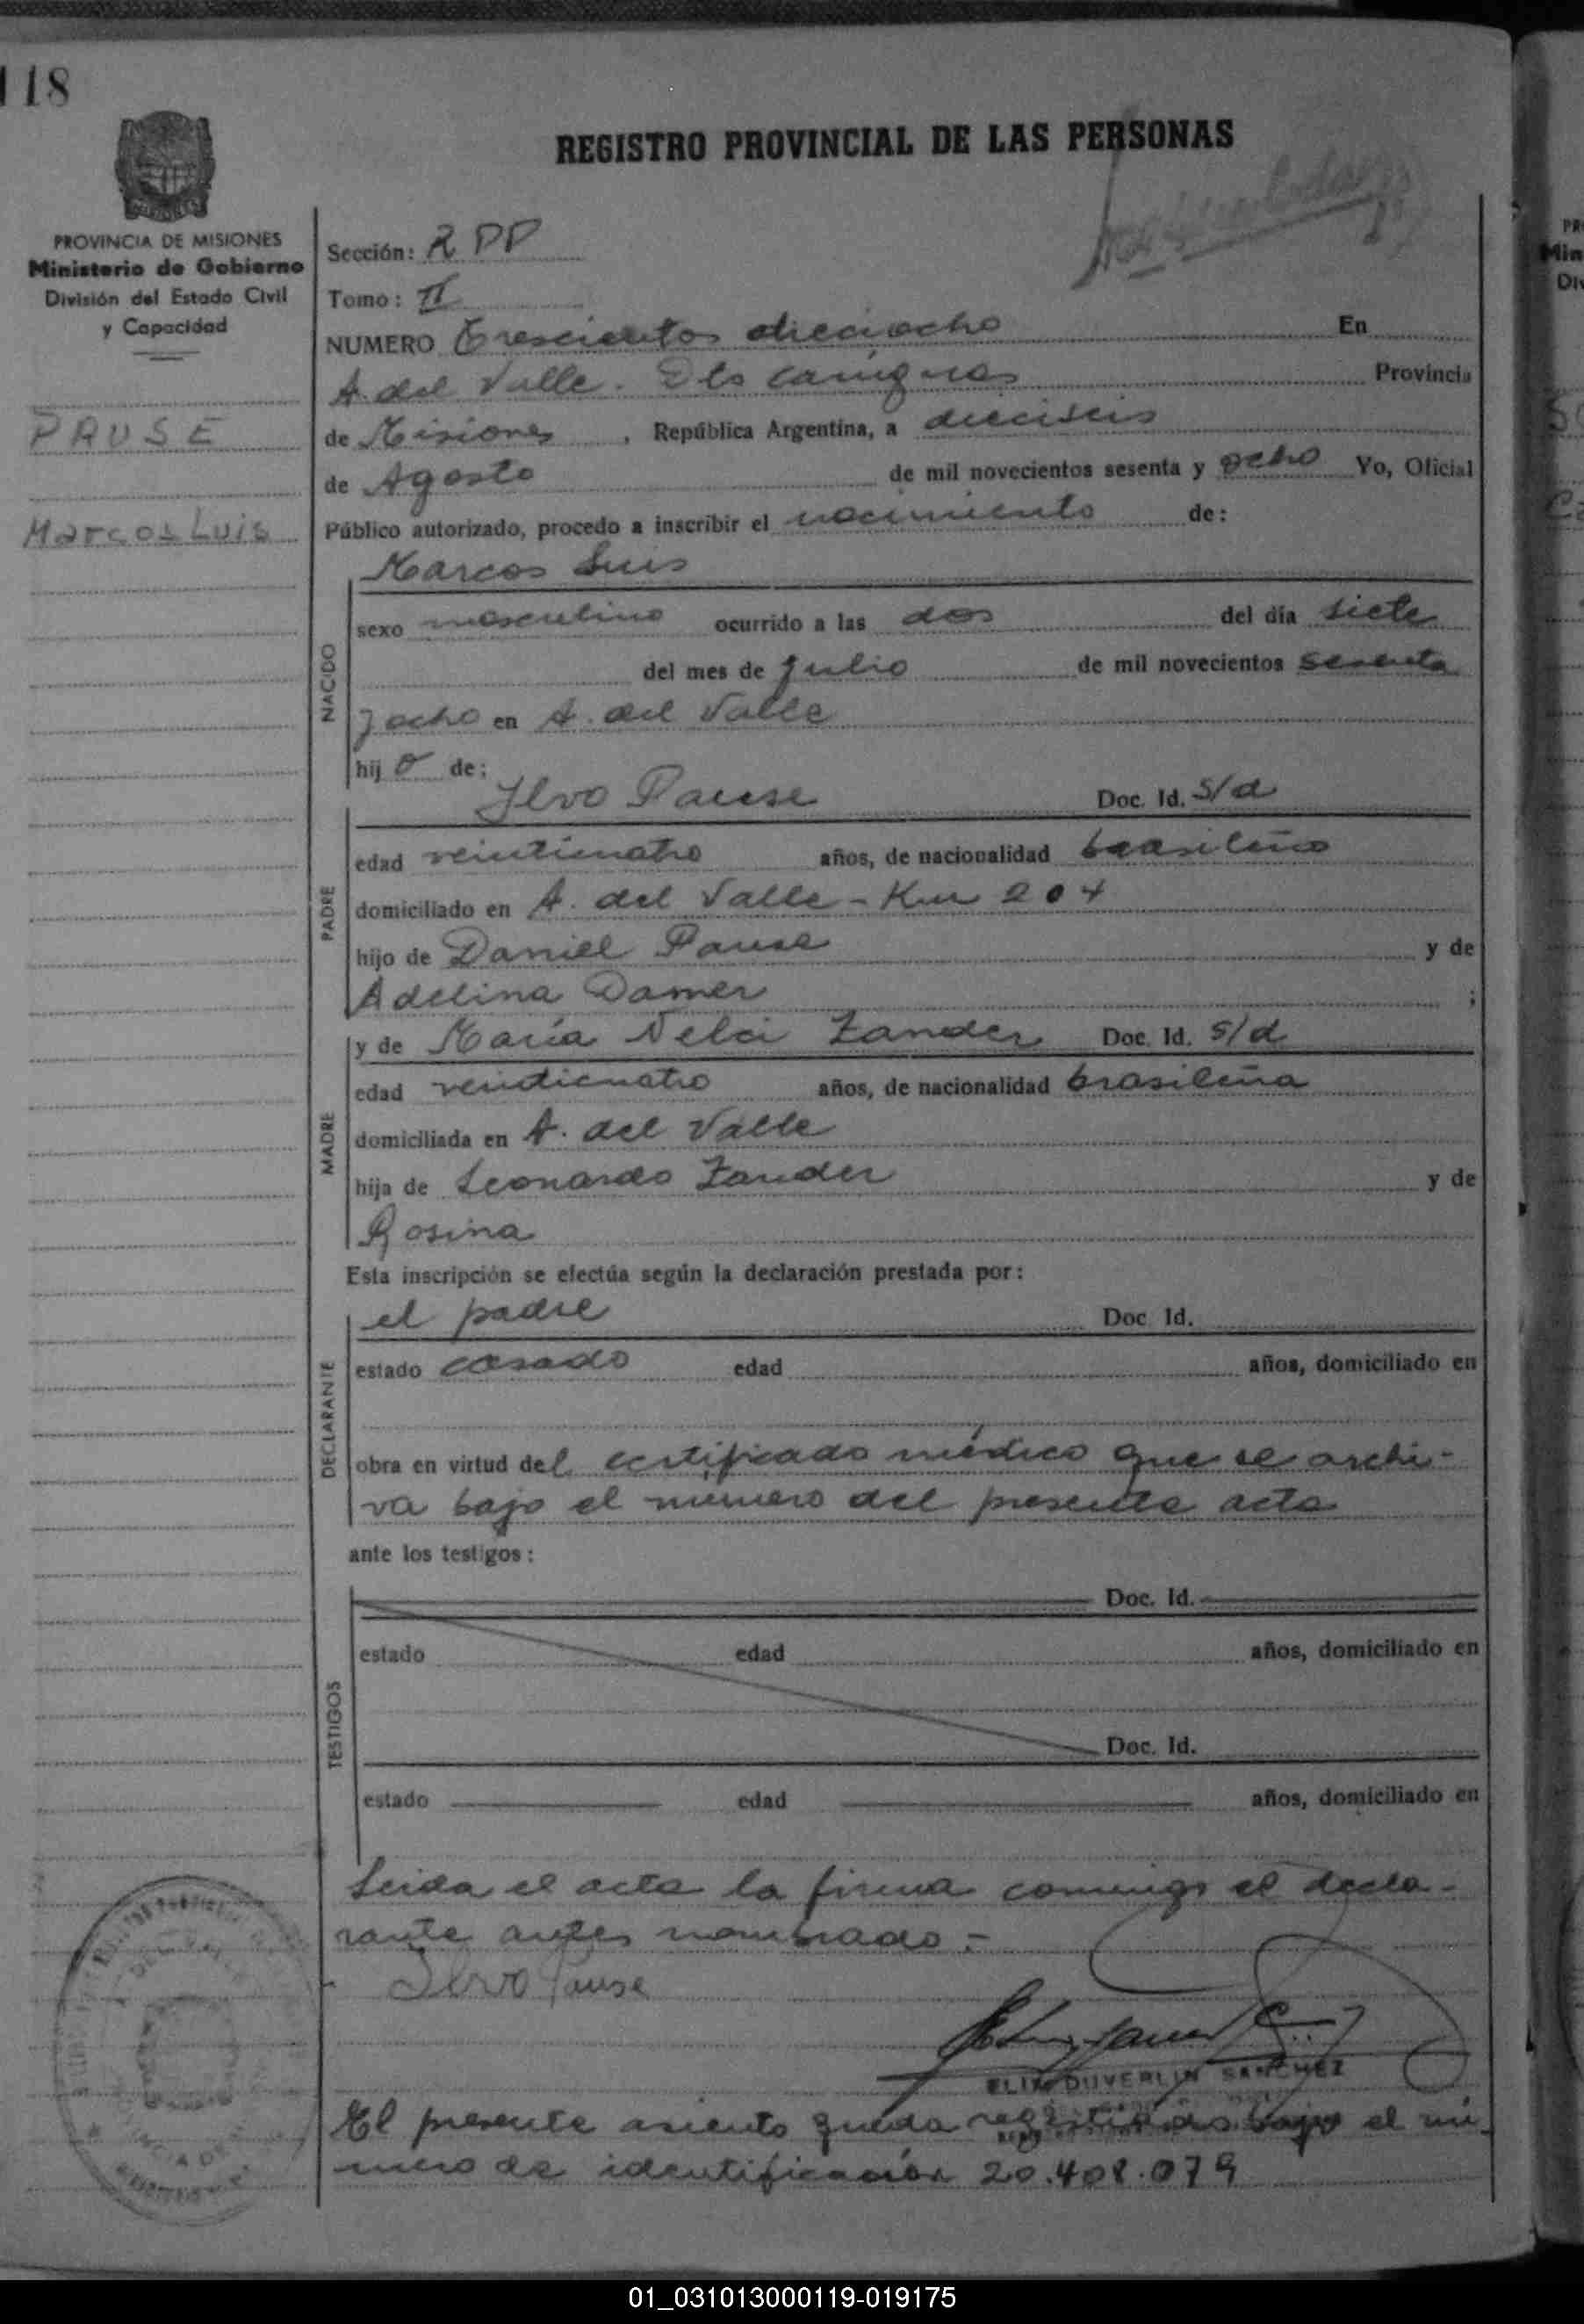 118
REGISTRO PROVINCIAL DE LAS PERSONAS
PROVINCIA DE MISIONES
Ministerio de Gobierno
División del Estado Civil
y Capacidad
PAUSE
Marcos Luis
Sección: 2 DD
Tomo: II
NUMERO Trescientos dieciocho En
A. del Valle. Dto Cainguas Provincia
de Misiones, República Argentina, a dieciseis
de Agosto de mil novecientos sesenta y ocho Yo, Oficial
Público autorizado, procedo a inscribir el nacimiento de:
NACIDO
Marcos Luis
sexo masculino ocurrido a las dos del día siete
del mes de julio de mil novecientos sesenta
y ocho en A. del Valle
hijo de:
PADRE
Ilvo Pause Doc. Id. s/d
edad veinticuatro años, de nacionalidad brasileño
domiciliado en A. del Valle - Km 204
hijo de Daniel Pause y de
Adelina Damer ;
MADRE
y de María Nelci Zander Doc. Id. s/d
edad veinticuatro años, de nacionalidad brasileña
domiciliada en A. del Valle
hija de Leonardo Zander y de
Rosina
Esta inscripción se efectúa según la declaración prestada por:
DECLARANTE
el padre Doc. Id.
estado casado edad años, domiciliado en
obra en virtud del certificado médico que se archi-
va bajo el número del presente acta
ante los testigos:
TESTIGOS
Doc. Id.
estado edad años, domiciliado en
Doc. Id.
estado edad años, domiciliado en
Leida el acta la firma conmigo el decla-
rante antes nombrado.-
Ilvo Pause
ELIM DUVERLIN SANCHEZ
El presente asiento queda registrado bajo el nú
mero de identificación 20.408.079
01_031013000119-019175